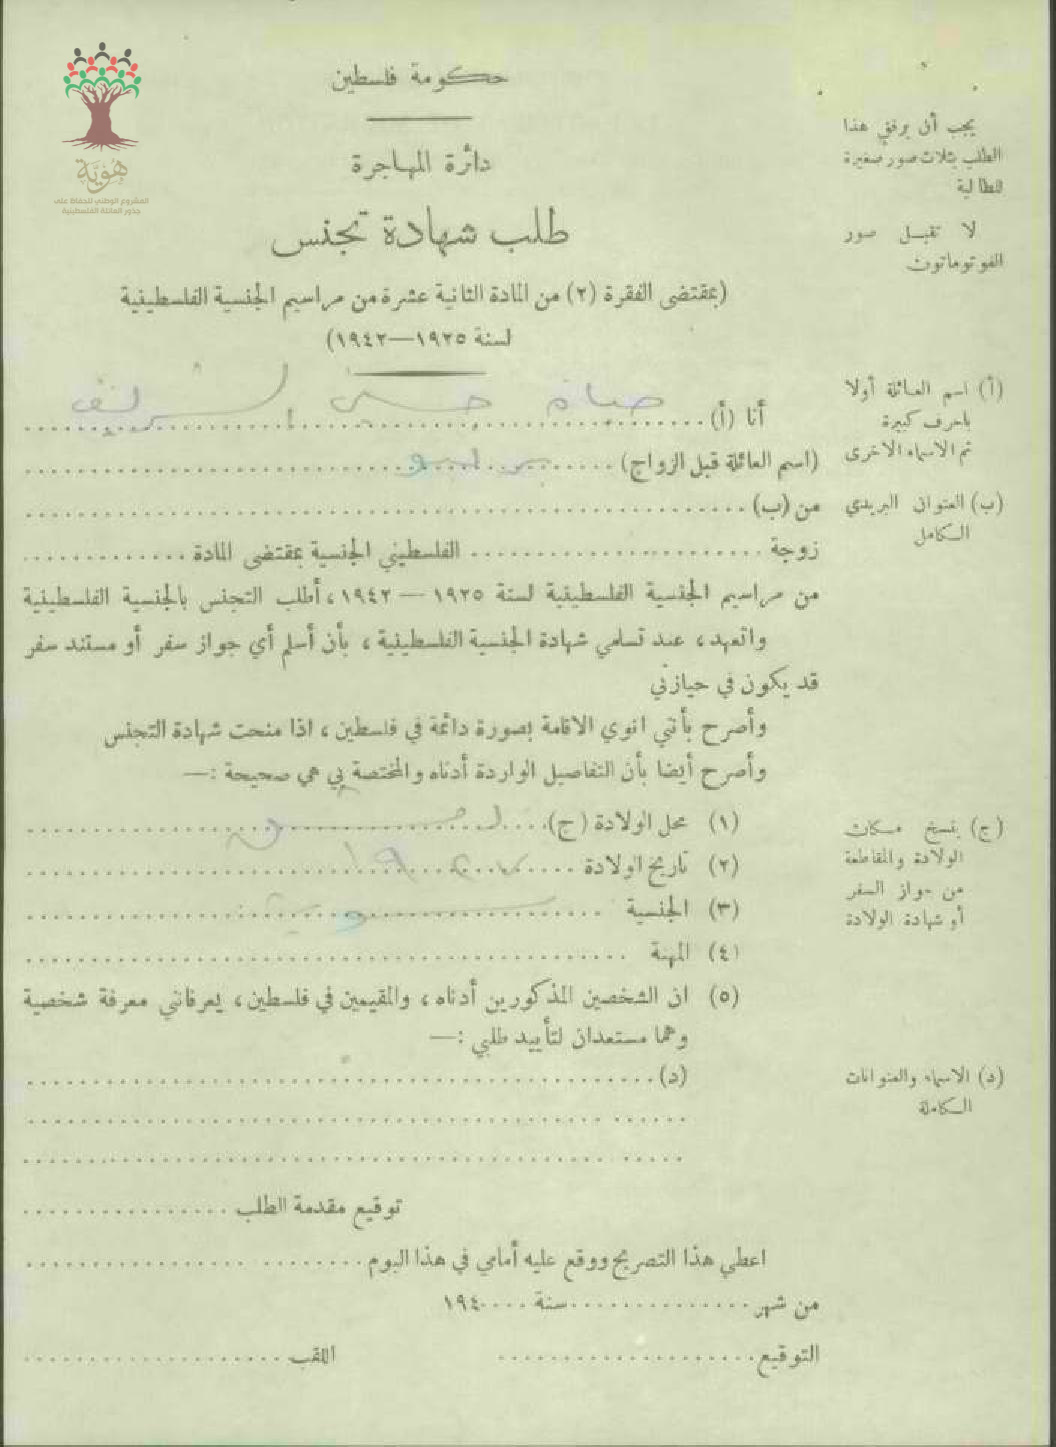 هوية
المشروع الوطني للحفاظ على
جذور العائلة الفلسطينية
حكومة فلسطين
دائرة المهاجرة
طلب شهادة تجنس
(بمقتضى الفقرة (٢) من المادة الثانية عشرة من مراسيم الجنسية الفلسطينية
لسنة ١٩٢٥—١٩٤٢)
يجب أن يرفق هذا
الطلب بثلاث صور صغيرة
للطالبة
لا تقبل صور
الفوتوماتون
أنا (أ) حسن الشريف
(اسم العائلة قبل الزواج)
من (ب)
زوجة الفلسطيني الجنسية بمقتضى المادة
من مراسيم الجنسية الفلسطينية لسنة ١٩٢٥ — ١٩٤٢، أطلب التجنس بالجنسية الفلسطينية
واتعهد، عند تسلمي شهادة الجنسية الفلسطينية، بأن أسلم أي جواز سفر أو مستند سفر
قد يكون في حيازتي
وأصرح بأنني انوي الاقامة بصورة دائمة في فلسطين، اذا منحت شهادة التجنس
وأصرح أيضا بأن التفاصيل الواردة أدناه والمختصة بي هي صحيحة :—
(١) محل الولادة (ج)
(٢) تاريخ الولادة
(٣) الجنسية
(٤) المهنة
(٥) ان الشخصين المذكورين أدناه، والمقيمين في فلسطين، يعرفانني معرفة شخصية
وهما مستعدان لتأييد طلبي :—
(د)
توقيع مقدمة الطلب
اعطي هذا التصريح ووقع عليه أمامي في هذا اليوم
من شهر سنة ١٩٤
التوقيع اللقب
(أ) اسم العائلة أولا
باحرف كبيرة
ثم الاسماء الاخرى
(ب) العنوان البريدي
الكامل
(ج) ينسخ مكان
الولادة والمقاطعة
من جواز السفر
أو شهادة الولادة
(د) الاسماء والعنوانات
الكاملة